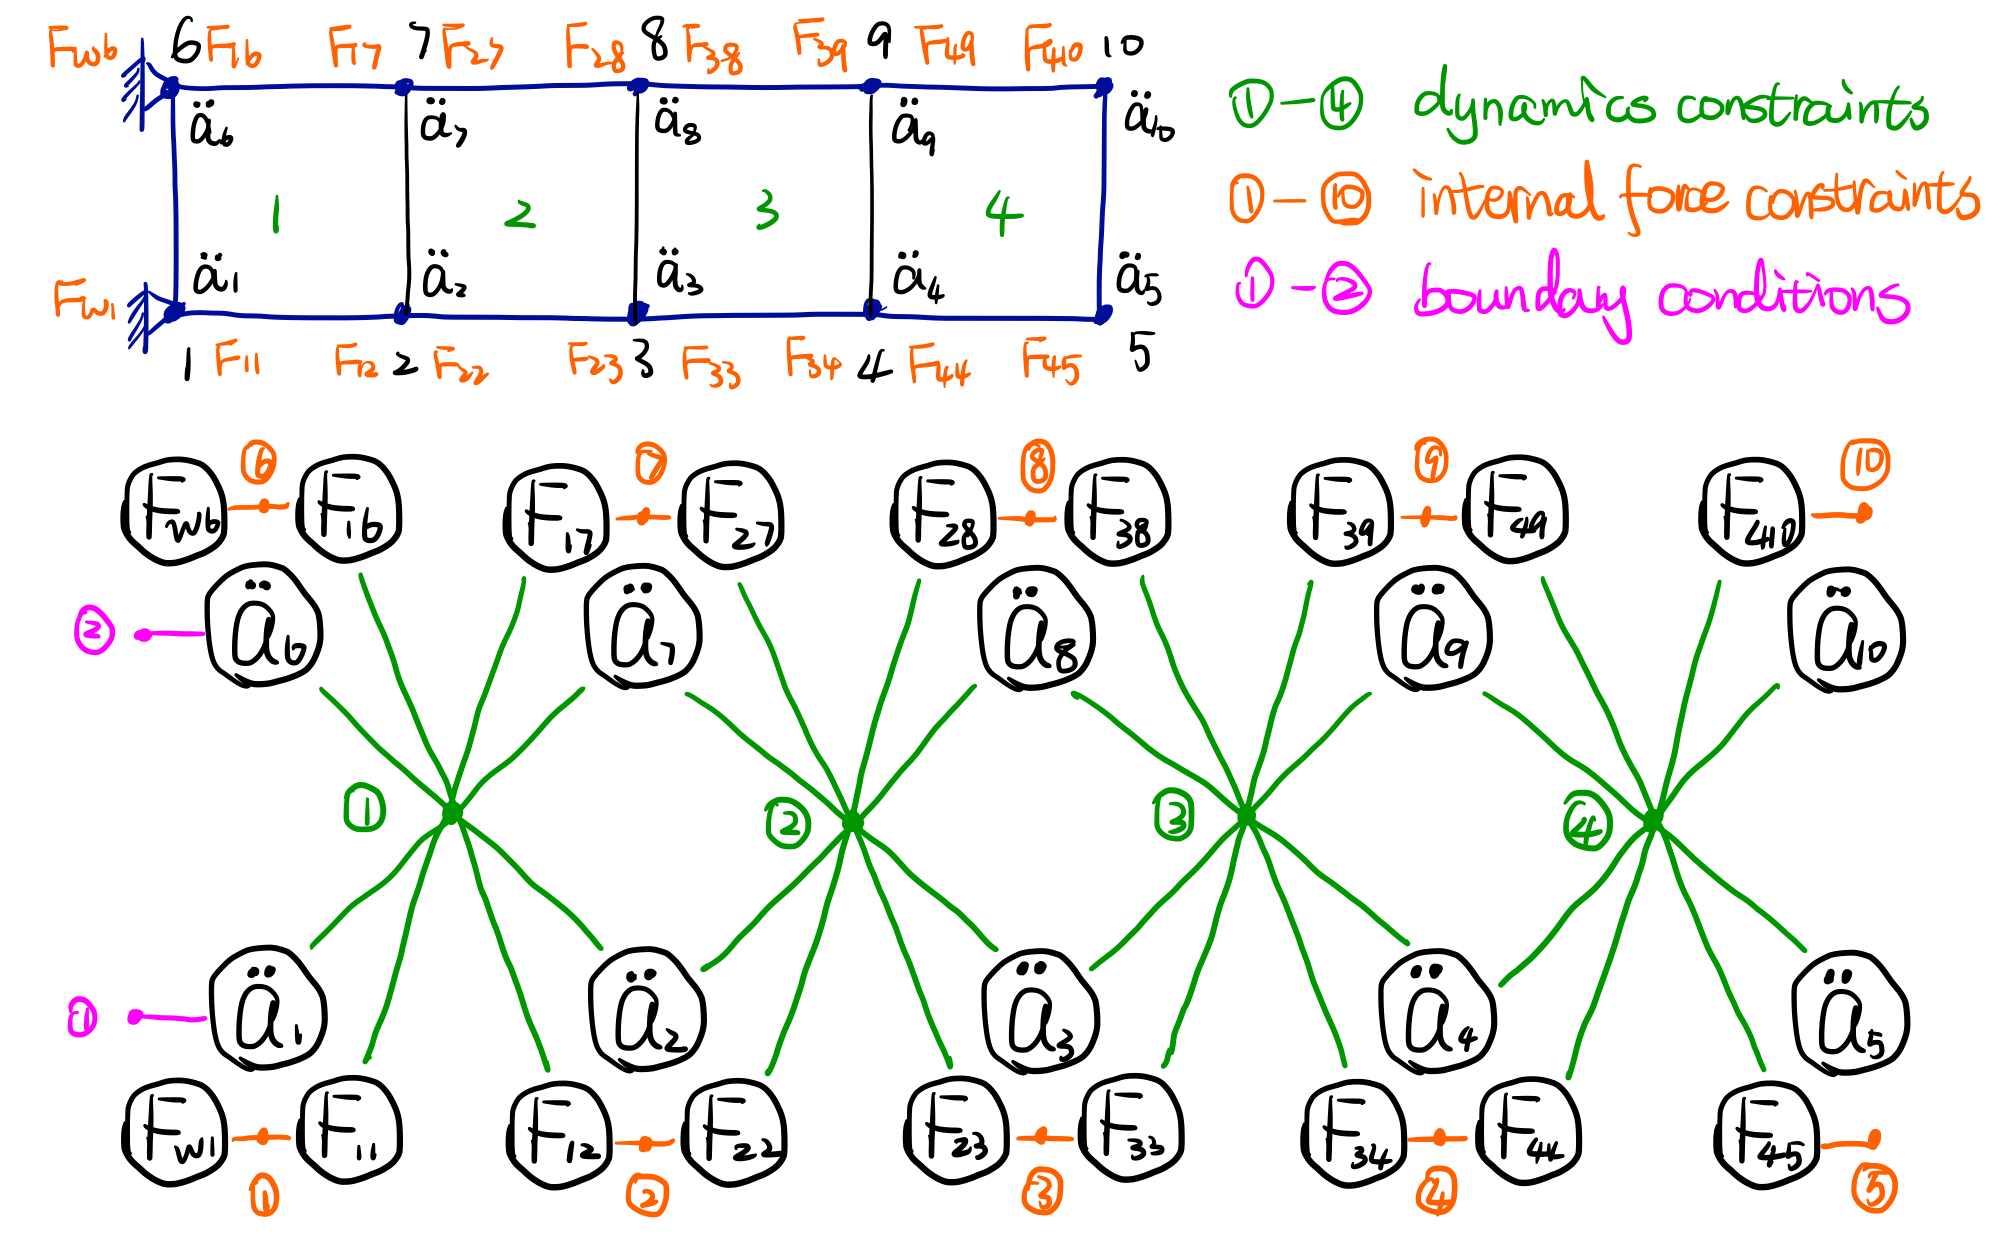 Fw6 6 F16 F17 7 F27 F28 8 F38 F39 9 F49 F410 10
ä6 ä7 ä8 ä9 ä10
1 2 3 4
ä1 ä2 ä3 ä4 ä5
Fw1
1 F11 F12 2 F22 F23 3 F33 F34 4 F44 F45 5
①-④ dynamics constraints
①-⑩ internal force constraints
①-② boundary conditions
⑥ ⑦ ⑧ ⑨ ⑩
Fw6 F16 F17 F27 F28 F38 F39 F49 F410
② ä6 ä7 ä8 ä9 ä10
① ② ③ ④
① ä1 ä2 ä3 ä4 ä5
Fw1 F11 F12 F22 F23 F33 F34 F44 F45
① ② ③ ④ ⑤